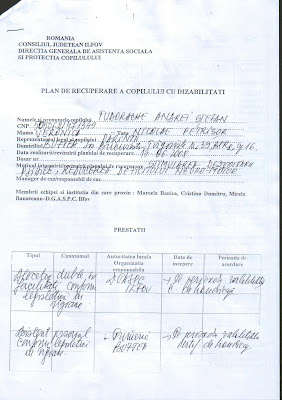 ROMANIA
CONSILIUL JUDETEAN ILFOV
DIRECTIA GENERALA DE ASISTENTA SOCIALA
SI PROTECTIA COPILULULUI
PLAN DE RECUPERARE A COPILULUI CU DIZABILITATI
Numele si prenumele copilului TUDORACHE ANDREI STEFAN
CNP
Mama VERONICA Tata NICOLAE PETRISOR
Reprezentantul legal al copilului PARINTII
Domiciliul
Data realizarii/revizuirii planului de recuperare 2008
Dosar nr
Motivul intocmirii/revizuirii planului de recuperare STIMULAREA DEZVOLTARII
REDUCEREA DEFICITULUI NEURO-MOTOR
Manager de caz/responsabil de caz
Membrii echipei si institutia din care provin : Marcela Banica, Cristina Dumitru, Mirela
Banateanu-D.G.A.S.P.C. Ilfov
PRESTATII
Tipul Cuantumul Autoritatea locala Data de Perioada de
Organizatia incepere acordare
responsabila
Alocatie dubla, in DGASPC → Pe perioada valabilitatii
facilitati conform ILFOV de handicap
legislatiei in
vigoare
Asistent personal - Primaria → Pe perioada valabilitatii
conform legislatiei BUFTEA certif. de handicap
in vigoare